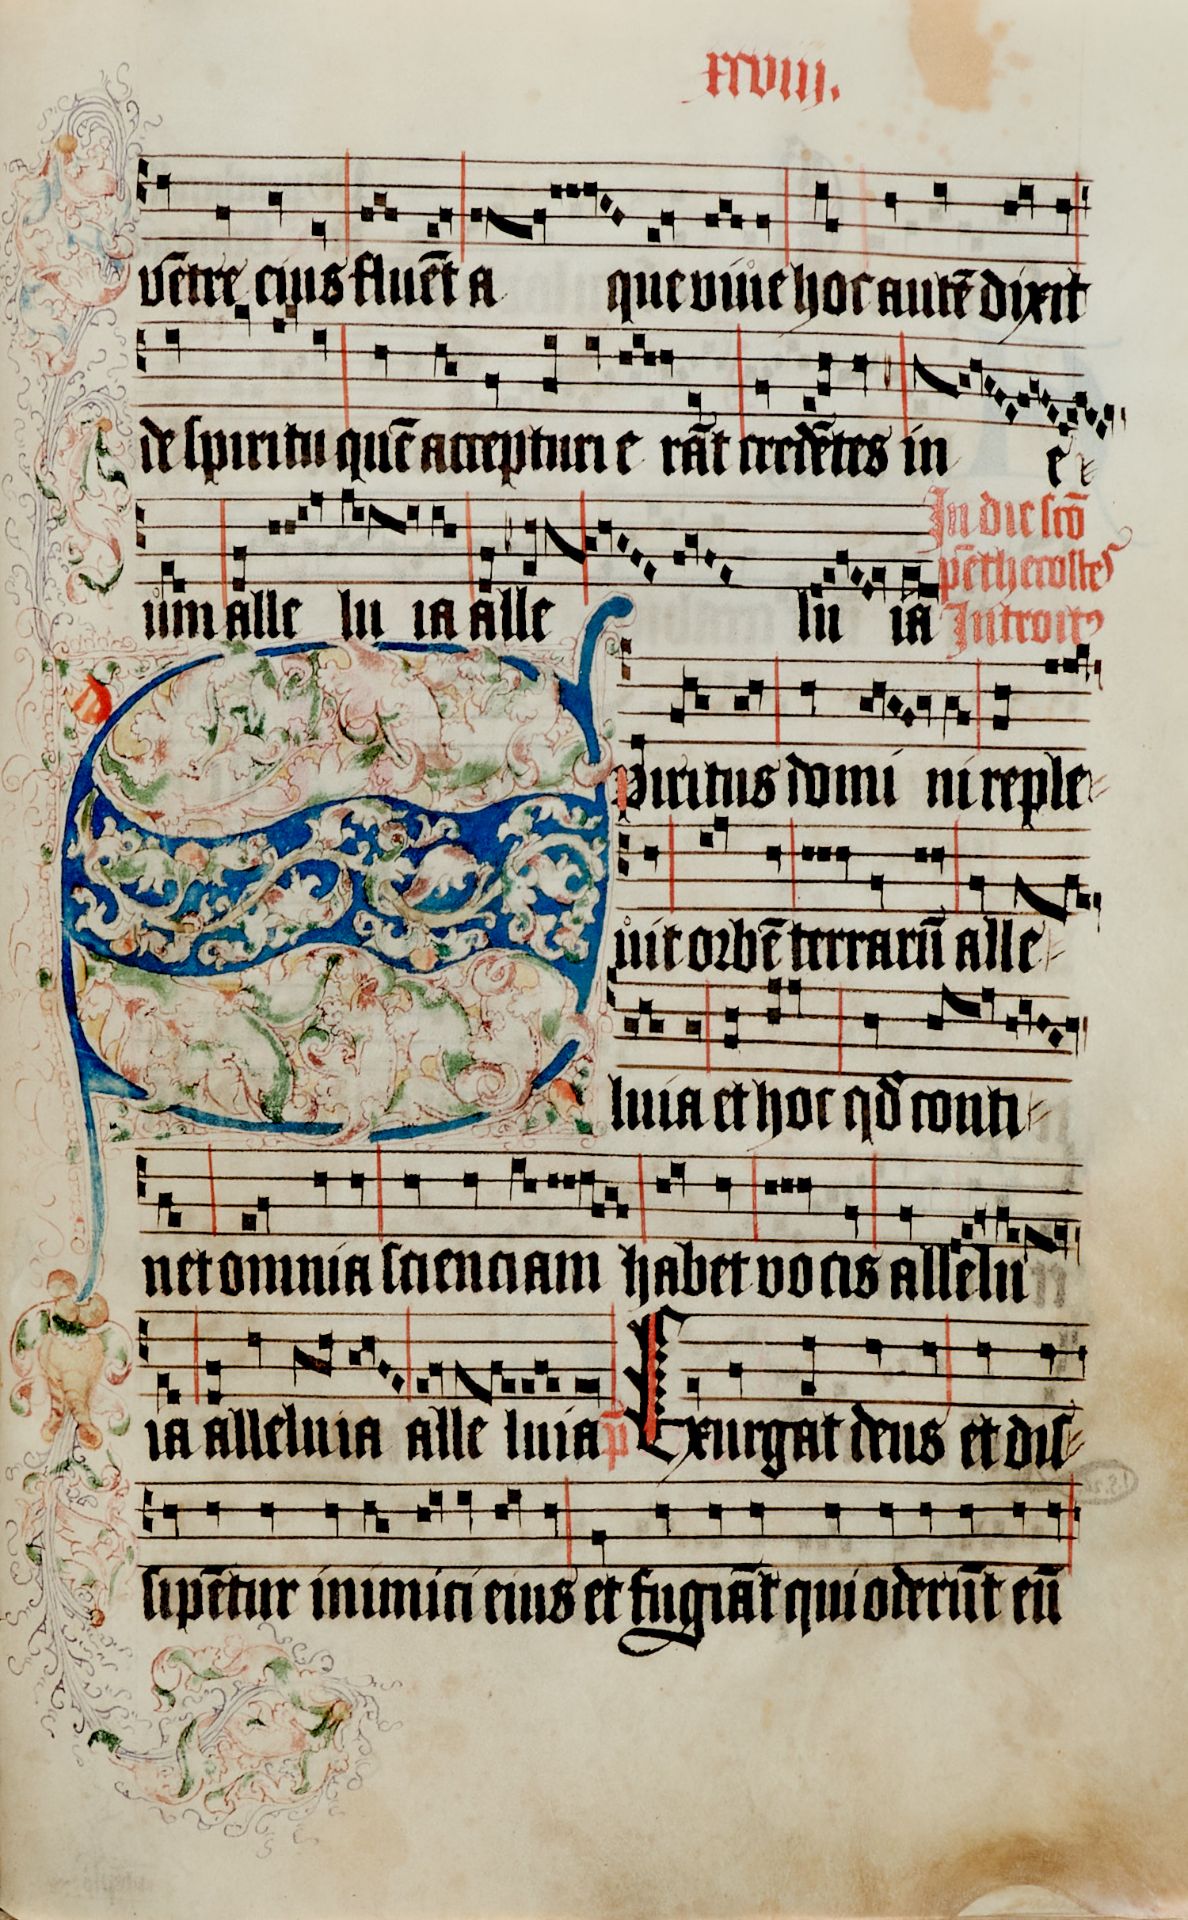 xxviij.
vētre eius fluēt a que viue hoc autē dixit
de spiritu quē accepturi e rāt credētes in e
um alle lu ia alle lu ia
In die scō
pēthecostes
Introitꝰ
Spiritus domi ni reple
uit orbē terrarū alle
luia et hoc qd̄ conti
net omnia scienciam habet vocis allelu
ia alleluia alle luia p̄ Exurgat deus et dis
sipētur inimici eius et fugiāt qui oderūt eū